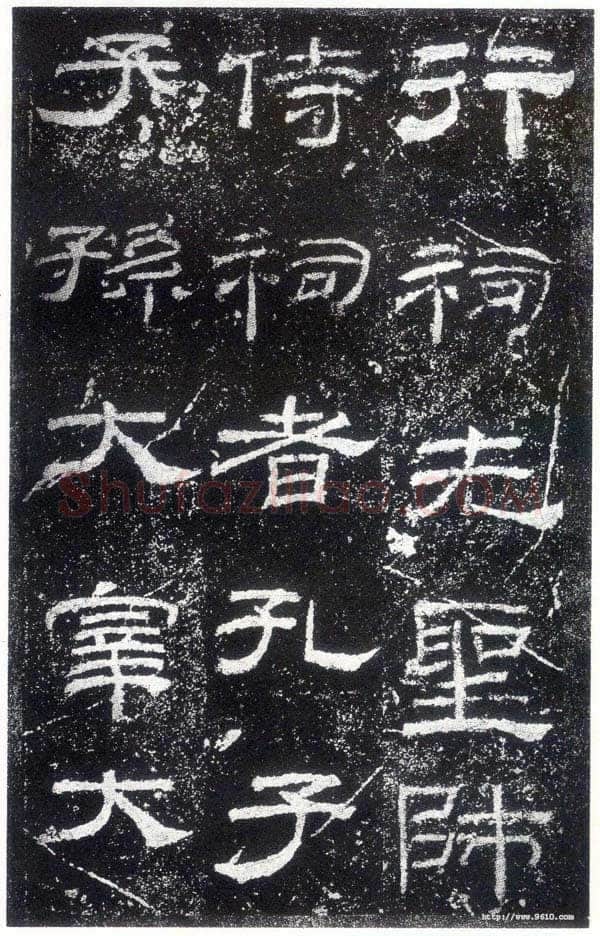 行祠先聖師
侍祠者孔子
子孫大宰大
Shufaziliao.COM
http://www.9610.com